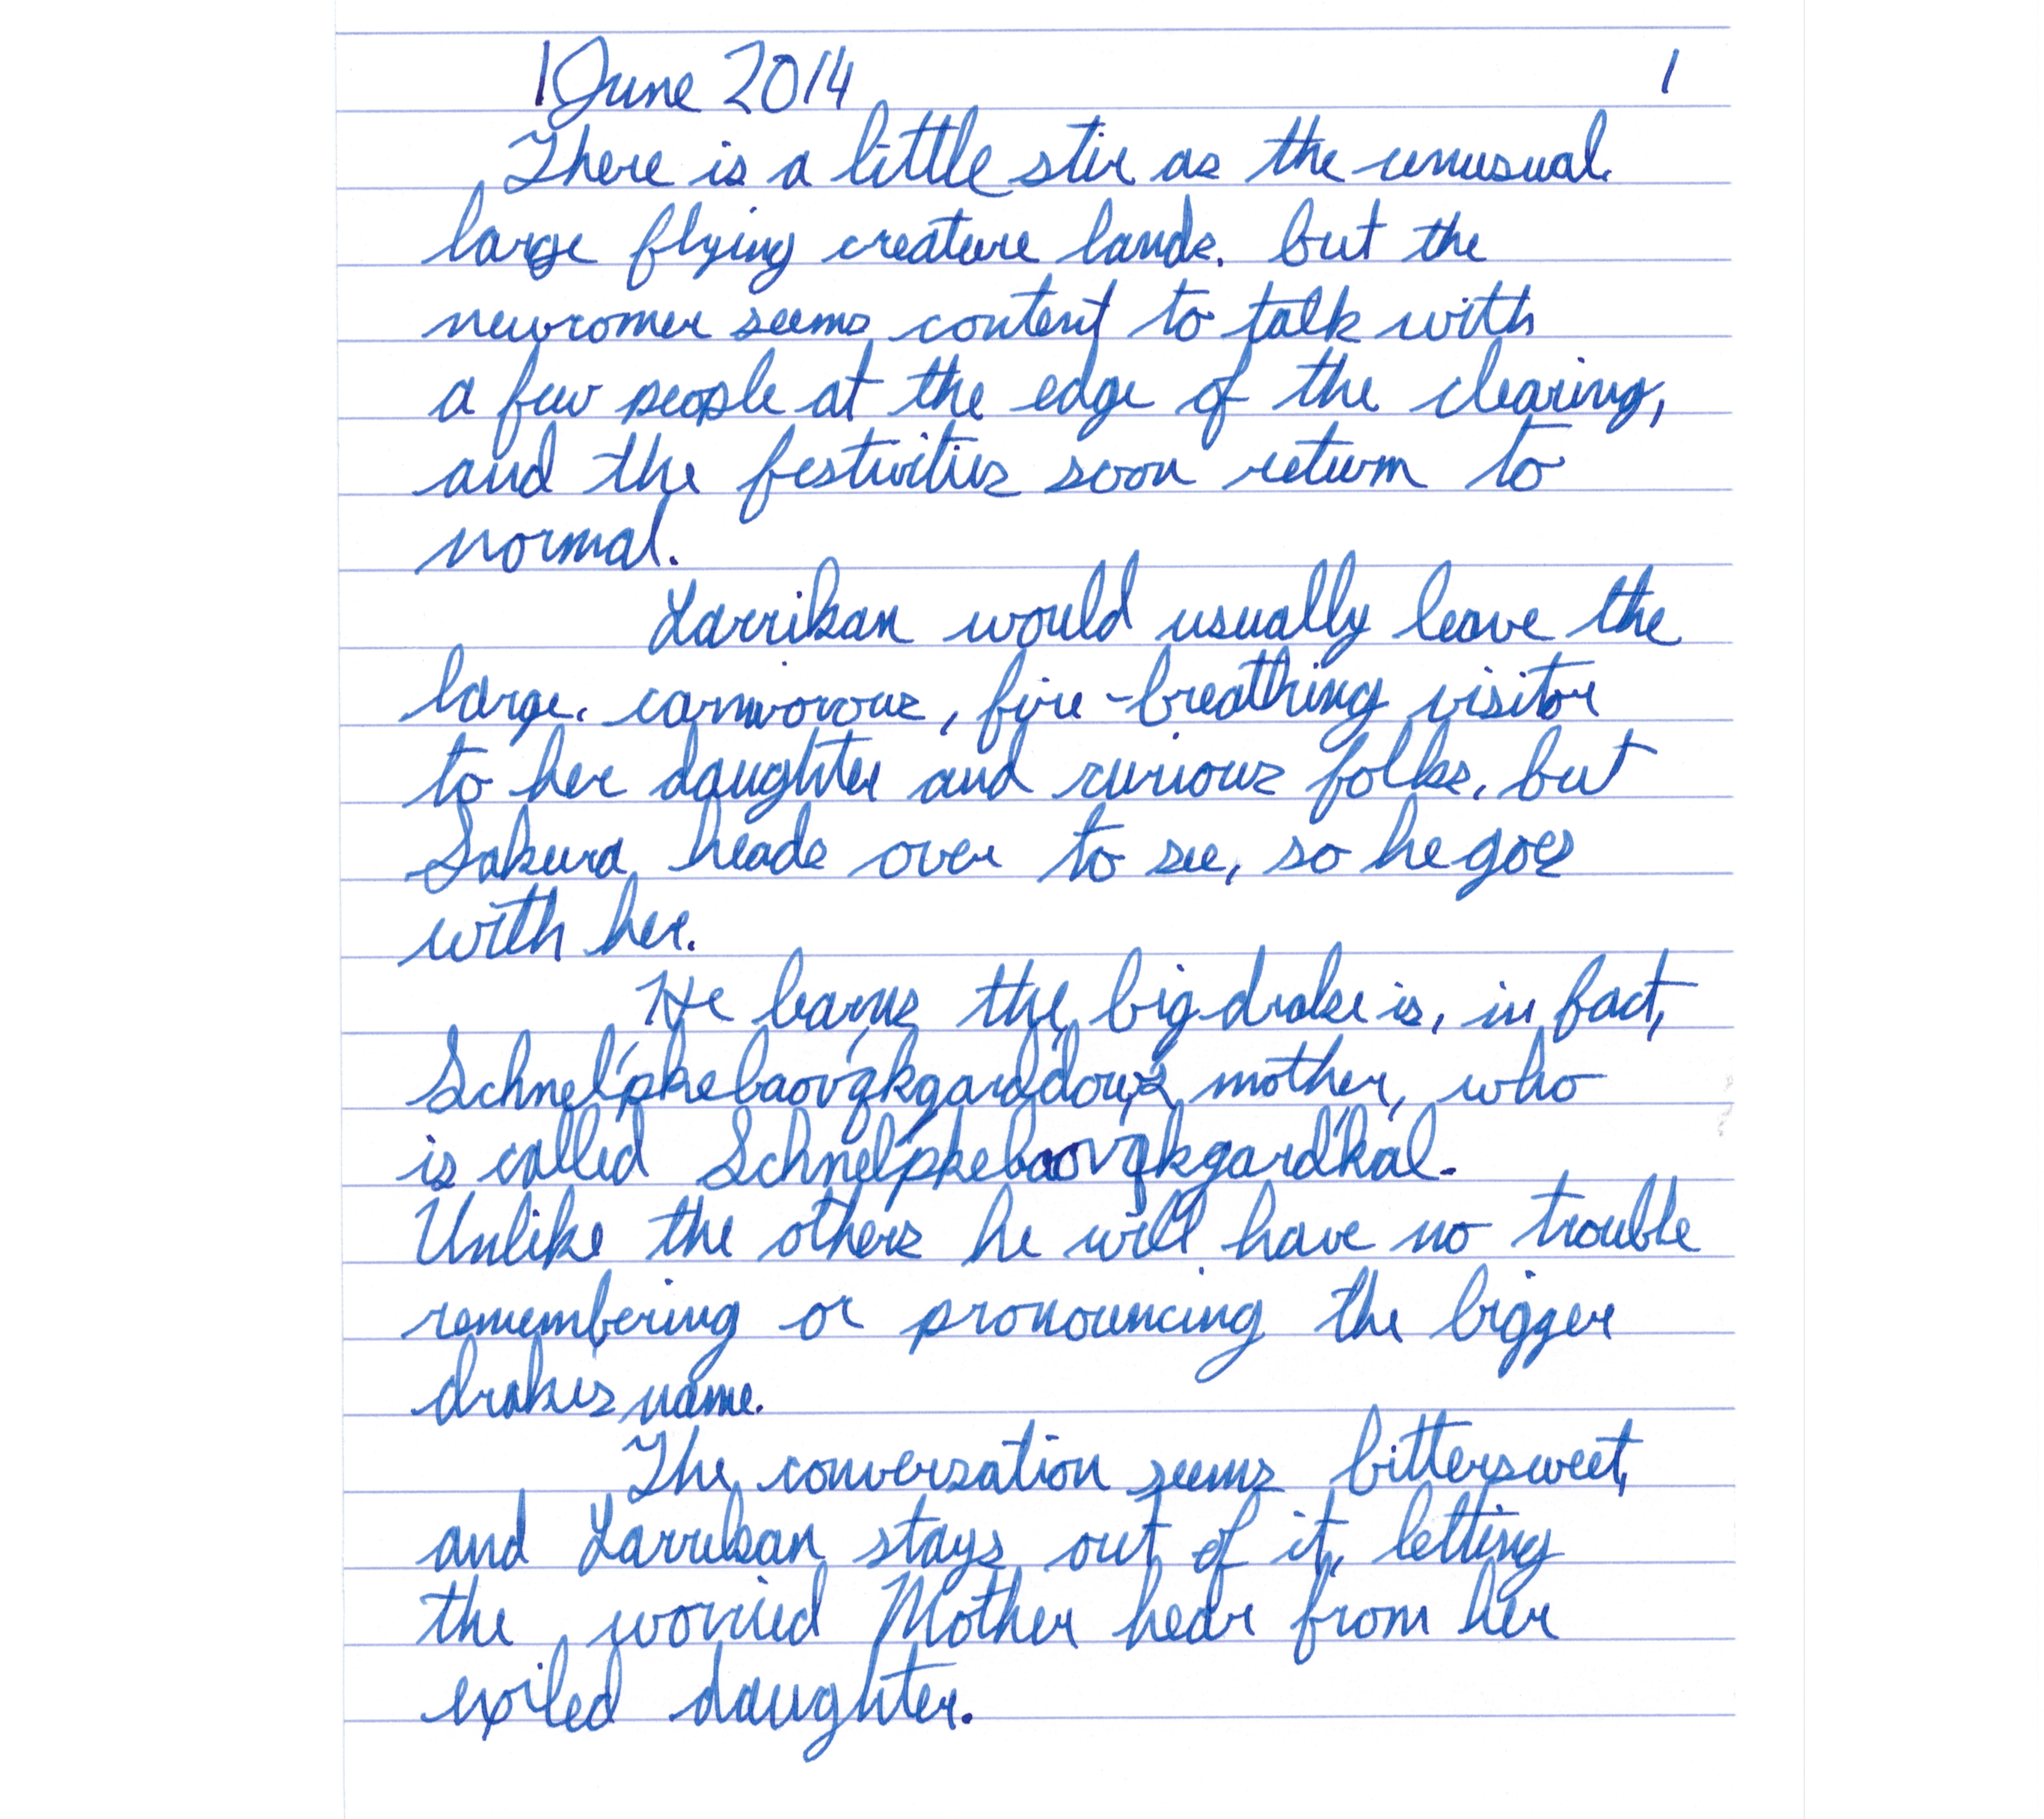 1 June 2014 1
There is a little stir as the unusual.
large flying creature lands, but the
newcomer seems content to talk with
a few people at the edge of the clearing,
and the festivities soon return to
normal.
Larrikan would usually leave the
large, carnivorous, fire-breathing visitor
to her daughter and curious folks, but
Sakura heads over to see, so he goes
with her.
He learns the big drake is, in fact,
mother, who
is called Schnel'pkebaovqkgard'kal.
Unlike the others he will have no trouble
remembering or pronouncing the bigger
drake's name.
The conversation seems bittersweet,
and Larrikan stays out of it, letting
the worried Mother hear from her
exiled daughter.